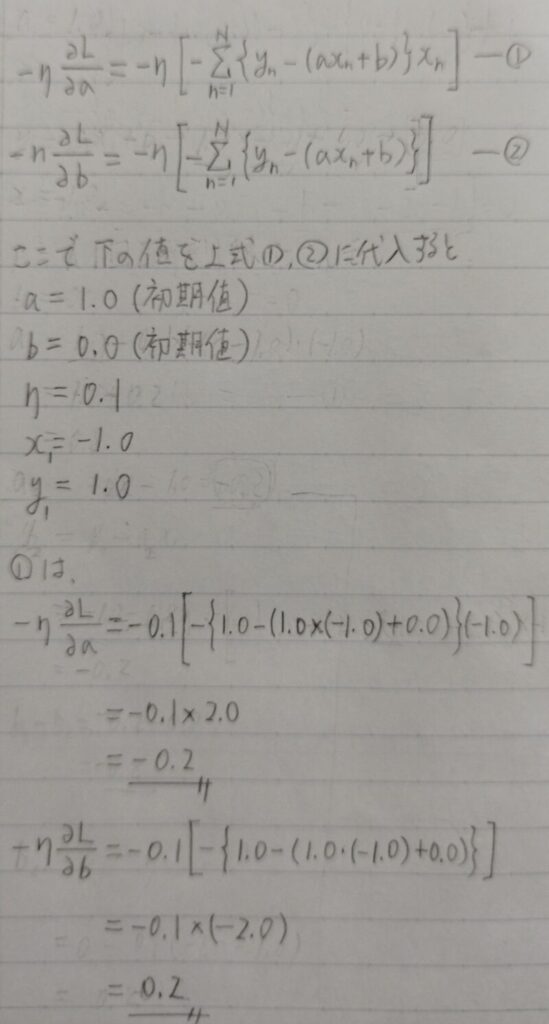 -η ∂L/∂a = -η [ -Σ_{n=1}^{N} {y_n - (ax_n + b)} x_n ] —①
-η ∂L/∂b = -η [ -Σ_{n=1}^{N} {y_n - (ax_n + b)} ] —②
ここで 下の値を上式①,②に代入すると
a = 1.0 (初期値)
b = 0.0 (初期値)
η = 0.1
x_1 = -1.0
y_1 = 1.0
①は、
-η ∂L/∂a = -0.1 [ -{1.0 - (1.0×(-1.0) + 0.0)} (-1.0) ]
= -0.1 × 2.0
= -0.2
-η ∂L/∂b = -0.1 [ -{1.0 - (1.0・(-1.0) + 0.0)} ]
= -0.1 × (-2.0)
= 0.2